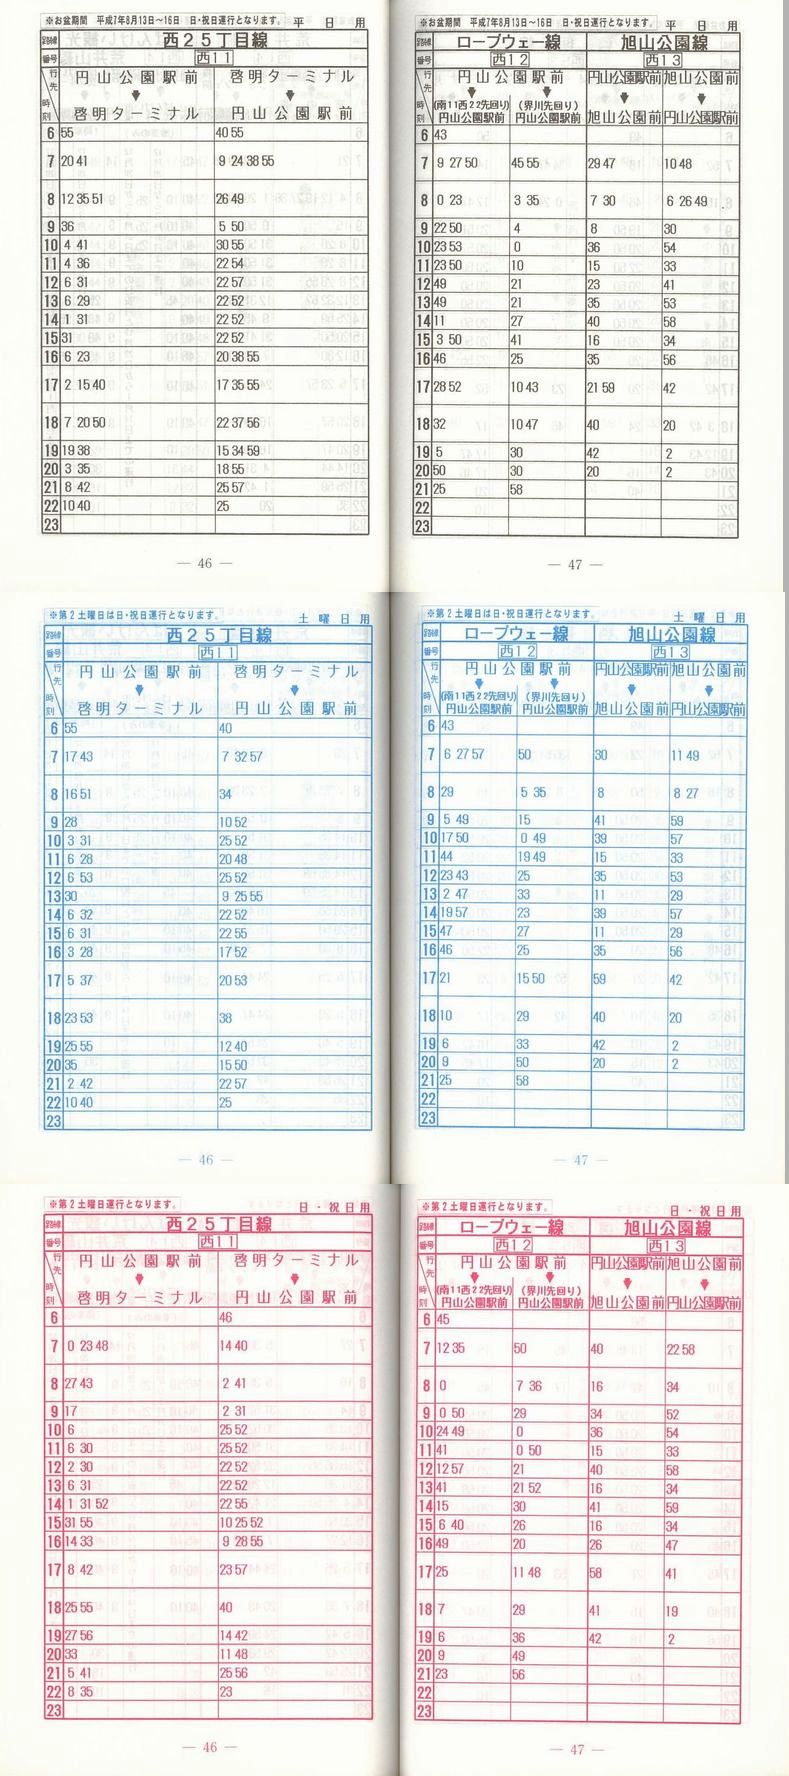 ※お盆期間 平成7年8月13日～16日 日・祝日運行となります。 平 日 用
路線 西25丁目線
番号 西11
行先 円山公園駅前 啓明ターミナル
時刻 啓明ターミナル 円山公園駅前
6 55 40 55
7 20 41 9 24 38 55
8 12 35 51 26 49
9 36 5 50
10 4 41 30 55
11 4 36 22 54
12 6 31 22 57
13 6 29 22 52
14 1 31 22 52
15 31 22 52
16 6 23 20 38 55
17 2 15 40 17 35 55
18 7 20 50 22 37 56
19 19 38 15 34 59
20 3 35 18 55
21 8 42 25 57
22 10 40 25
23
— 46 —
※お盆期間 平成7年8月13日～16日 日・祝日運行となります。 平 日 用
路線 ロープウェー線 旭山公園線
番号 西12 西13
行先 円山公園駅前 円山公園駅前 旭山公園前
(南11西22先回り) (界川先回り)
時刻 円山公園駅前 円山公園駅前 旭山公園前 円山公園駅前
6 43
7 9 27 50 45 55 29 47 10 48
8 0 23 3 35 7 30 6 26 49
9 22 50 4 8 30
10 23 53 0 36 54
11 23 50 10 15 33
12 49 21 23 41
13 49 21 35 53
14 11 27 40 58
15 3 50 41 16 34
16 46 25 35 56
17 28 52 10 43 21 59 42
18 32 10 47 40 20
19 5 30 42 2
20 50 30 20 2
21 25 58
22
23
— 47 —
※第2土曜日は日・祝日運行となります。 土 曜 日 用
路線 西25丁目線
番号 西11
行先 円山公園駅前 啓明ターミナル
時刻 啓明ターミナル 円山公園駅前
6 55 40
7 17 43 7 32 57
8 16 51 34
9 28 10 52
10 3 31 25 52
11 6 28 20 48
12 6 53 25 52
13 30 9 25 55
14 6 32 22 52
15 6 31 22 55
16 3 28 17 52
17 5 37 20 53
18 23 53 38
19 25 55 12 40
20 35 15 50
21 2 42 22 57
22 10 40 25
23
— 46 —
※第2土曜日は日・祝日運行となります。 土 曜 日 用
路線 ロープウェー線 旭山公園線
番号 西12 西13
行先 円山公園駅前 円山公園駅前 旭山公園前
(南11西22先回り) (界川先回り)
時刻 円山公園駅前 円山公園駅前 旭山公園前 円山公園駅前
6 43
7 6 27 57 50 30 11 49
8 29 5 35 8 8 27
9 5 49 15 41 59
10 17 50 0 49 39 57
11 44 19 49 15 33
12 23 43 25 35 53
13 2 47 33 11 29
14 19 57 23 39 57
15 47 27 11 29
16 46 25 35 56
17 21 15 50 59 42
18 10 29 40 20
19 6 33 42 2
20 9 50 20 2
21 25 58
22
23
— 47 —
※第2土曜日運行となります。 日・祝日用
路線 西25丁目線
番号 西11
行先 円山公園駅前 啓明ターミナル
時刻 啓明ターミナル 円山公園駅前
6 46
7 0 23 48 14 40
8 27 43 2 41
9 17 2 31
10 6 25 52
11 6 30 25 52
12 2 30 22 52
13 6 31 22 52
14 1 31 52 22 55
15 31 55 10 25 52
16 14 33 9 28 55
17 8 42 23 57
18 25 55 40
19 27 56 14 42
20 33 11 48
21 5 41 25 56
22 8 35 23
23
— 46 —
※第2土曜日運行となります。 日・祝日用
路線 ロープウェー線 旭山公園線
番号 西12 西13
行先 円山公園駅前 円山公園駅前 旭山公園前
(南11西22先回り) (界川先回り)
時刻 円山公園駅前 円山公園駅前 旭山公園前 円山公園駅前
6 45
7 12 35 50 40 22 58
8 0 7 36 16 34
9 0 50 29 34 52
10 24 49 0 36 54
11 41 0 50 15 33
12 12 57 21 40 58
13 41 21 52 16 34
14 15 30 41 59
15 6 40 26 16 34
16 49 20 26 47
17 25 11 48 58 41
18 7 29 41 19
19 6 36 42 2
20 9 49
21 23 56
22
23
— 47 —